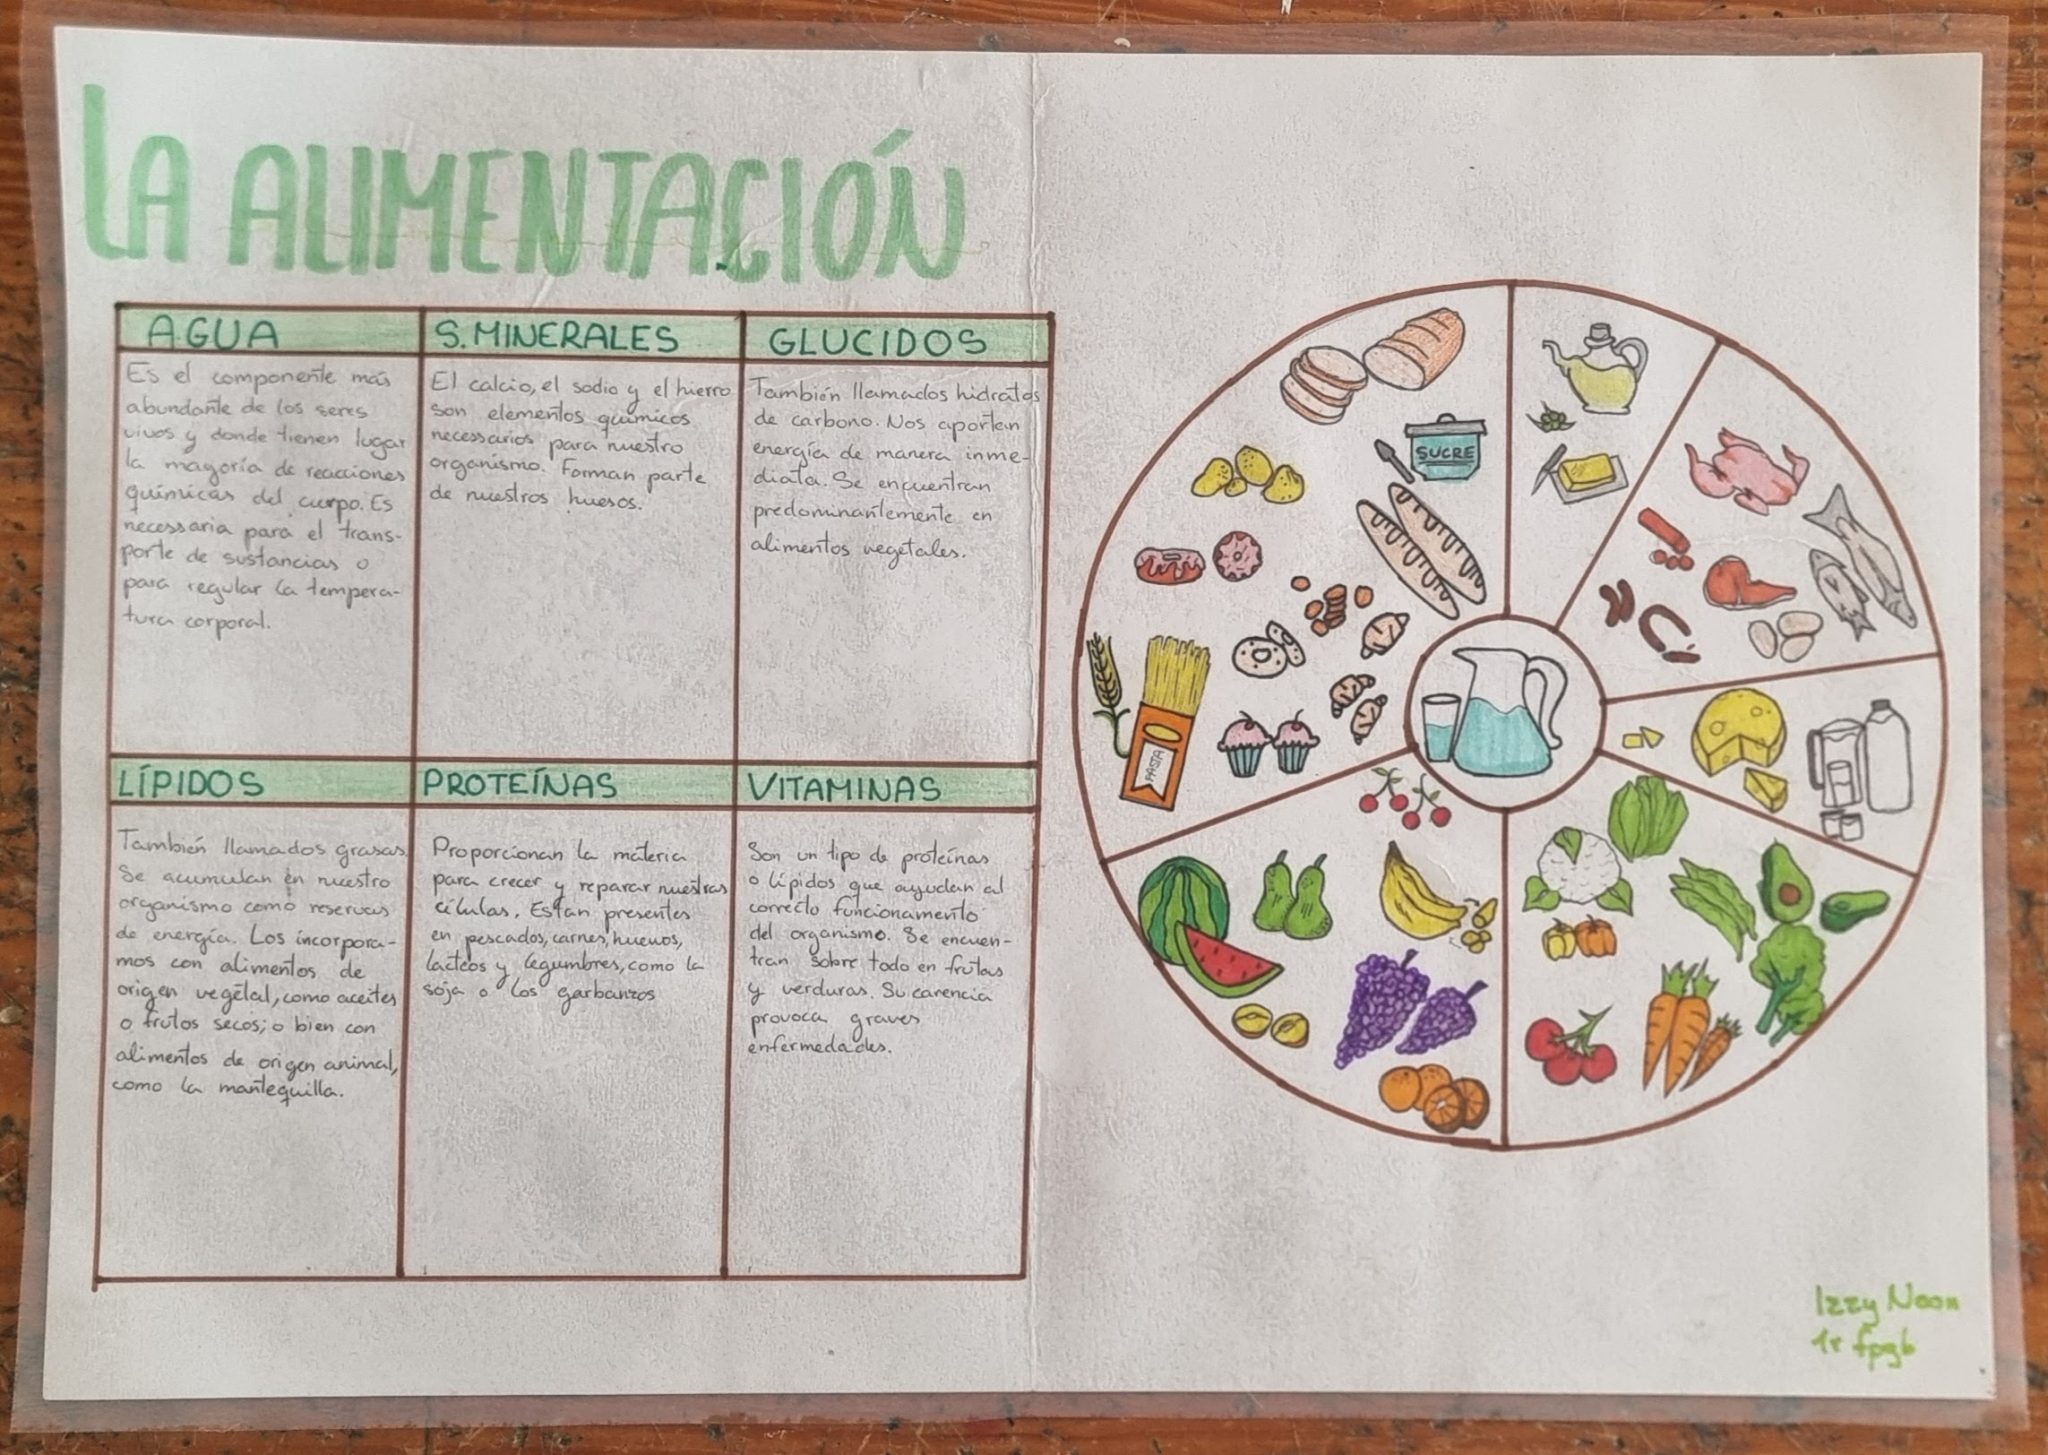 LA ALIMENTACIÓN
AGUA
Es el componente más
abundante de los seres
vivos y donde tienen lugar
la mayoría de reacciones
químicas del cuerpo. Es
necessaria para el trans-
porte de sustancias o
para regular la tempera-
tura corporal.
S. MINERALES
El calcio, el sodio y el hierro
son elementos químicos
necessarios para nuestro
organismo. Forman parte
de nuestros huesos.
GLUCIDOS
También llamados hidratos
de carbono. Nos aportan
energía de manera inme-
diata. Se encuentran
predominantemente en
alimentos vegetales.
LÍPIDOS
También llamados grasas.
Se acumulan en nuestro
organismo como reservas
de energía. Los incorpora-
mos con alimentos de
origen vegetal, como aceites
o frutos secos; o bien con
alimentos de origen animal,
como la mantequilla.
PROTEÍNAS
Proporcionan la materia
para crecer y reparar nuestras
células. Estan presentes
en pescados, carnes, huevos,
lácteos y legumbres, como la
soja o los garbanzos
VITAMINAS
Son un tipo de proteínas
o lípidos que ayudan al
correcto funcionamento
del organismo. Se encuen-
tran sobre todo en frutas
y verduras. Su carencia
provoca graves
enfermedades.
SUCRE
PASTA
Izzy Noon
1r fpgb